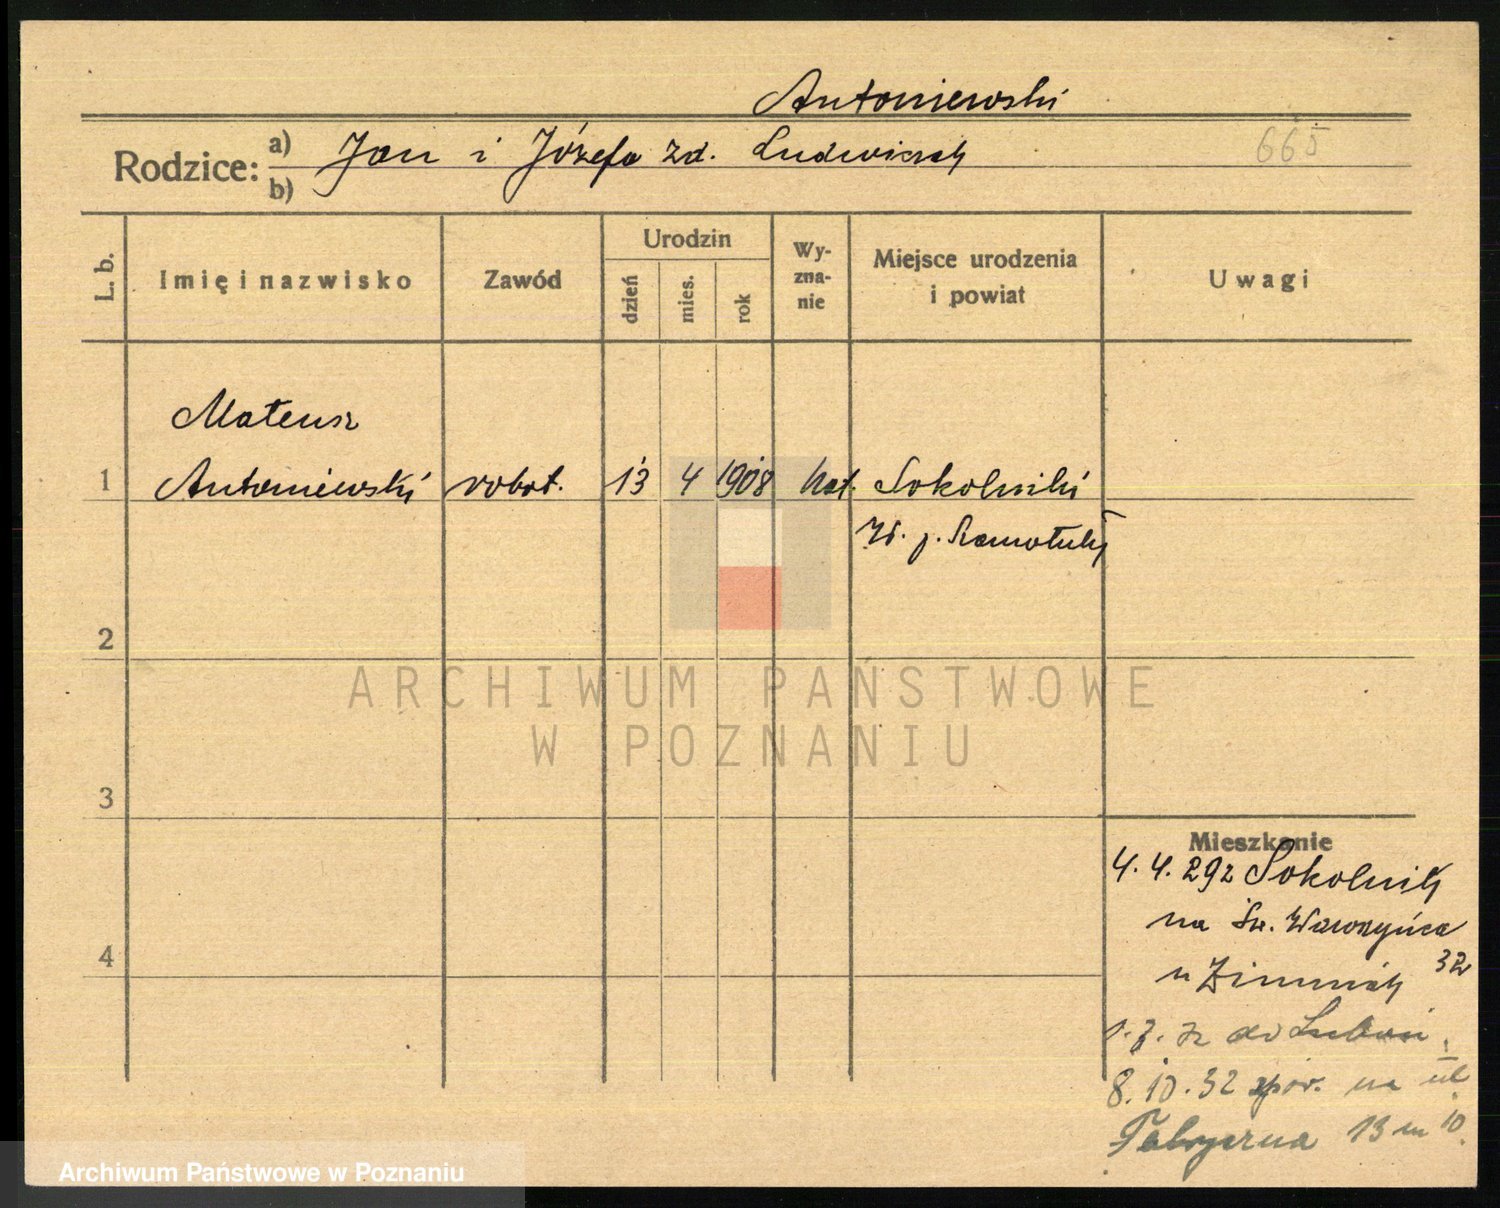 Antoniewski
Rodzice: a) Jan i Józefa zd. Ludwiczak
b)
665
L. b.
Imię i nazwisko
Zawód
Urodzin
dzień
mies.
rok
Wy-
zna-
nie
Miejsce urodzenia
i powiat
Uwagi
Mateusz
1 Antoniewski robot. 13 4 1908 kat. Sokolniki
p. Szamotuły
2
3
4
ARCHIWUM PAŃSTWOWE
W POZNANIU
Mieszkanie
4.4.29 z Sokolnik
na Św. Wawrzyńca 32
u
do Luboń
8.10.32 na ul
Fabryczna 13 m 10.
Archiwum Państwowe w Poznaniu